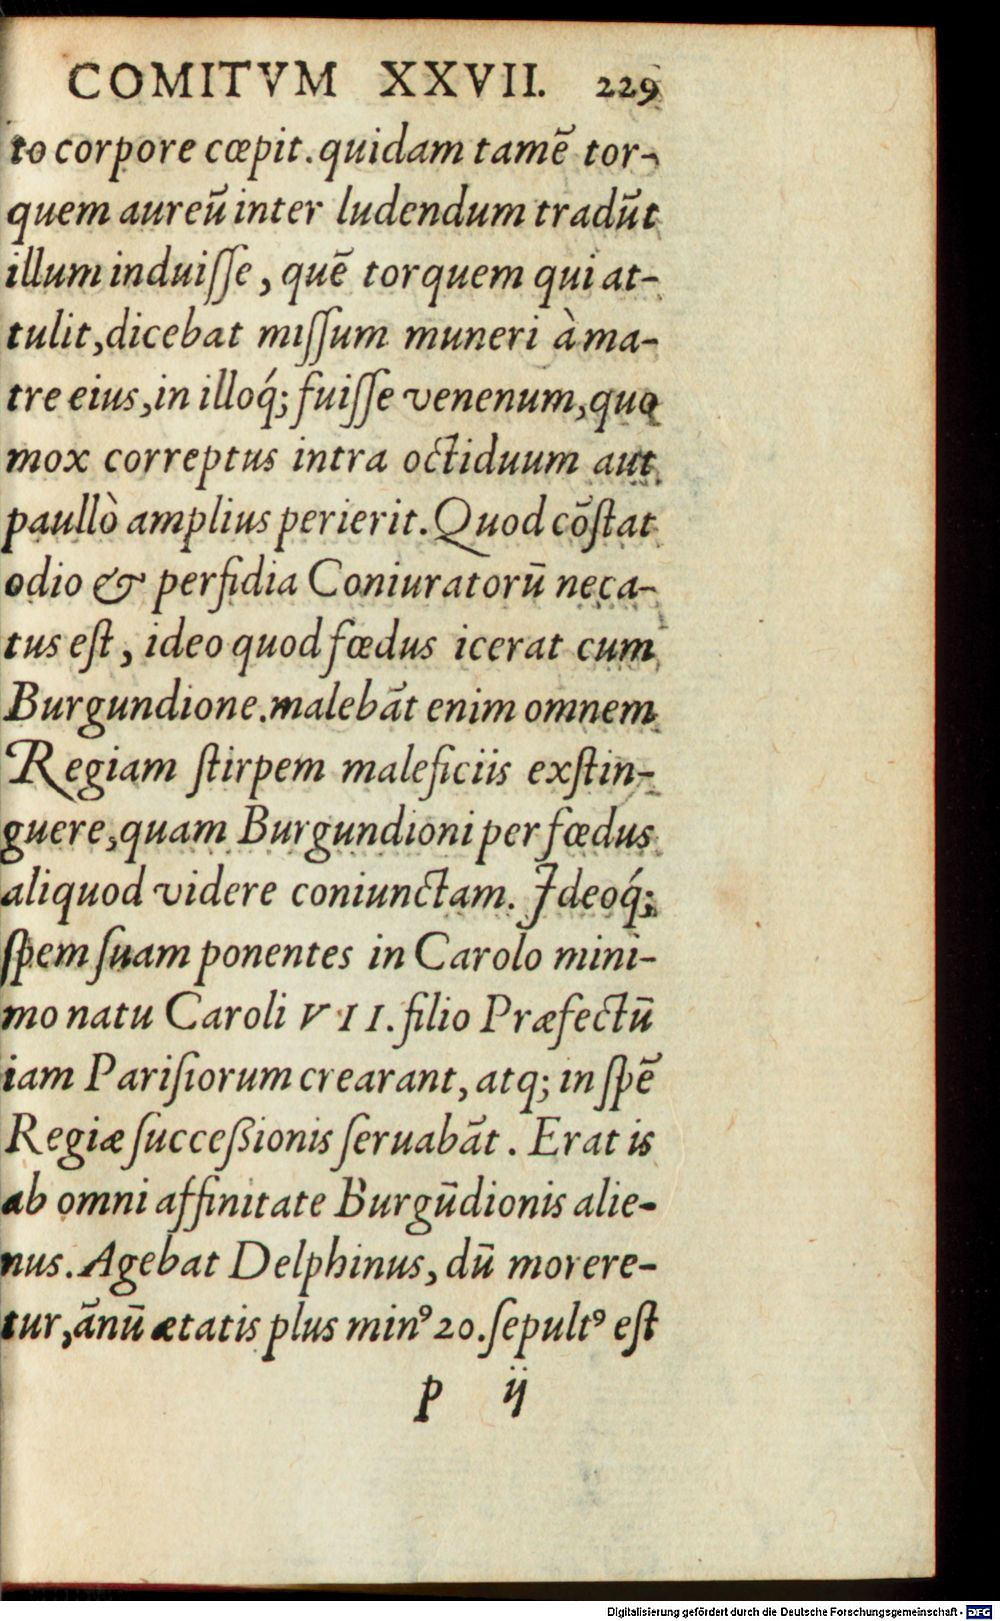 COMITVM XXVII. 229
to corpore cœpit. quidam tamē tor-
quem aureū inter ludendum tradūt
illum induiſſe, quē torquem qui at-
tulit, dicebat miſſum muneri à ma-
tre eius, in illoq́; fuiſſe venenum, quo
mox correptus intra octiduum aut
paullò amplius perierit. Quod cōſtat
odio & perfidia Coniuratorū neca-
tus eſt, ideo quod fœdus icerat cum
Burgundione. malebāt enim omnem
Regiam ſtirpem maleficiis exſtin-
guere, quam Burgundioni per fœdus
aliquod videre coniunctam. Ideoq́;
ſpem ſuam ponentes in Carolo mini-
mo natu Caroli VII. filio Præfectū
iam Pariſiorum crearant, atq; in ſpē
Regiæ ſucceßionis ſeruabāt. Erat is
ab omni affinitate Burgūdionis alie-
nus. Agebat Delphinus, dū morere-
tur, ānū ætatis plus minꝰ 20. ſepultꝰ eſt
p ij
Digitalisierung gefördert durch die Deutsche Forschungsgemeinschaft - DFG